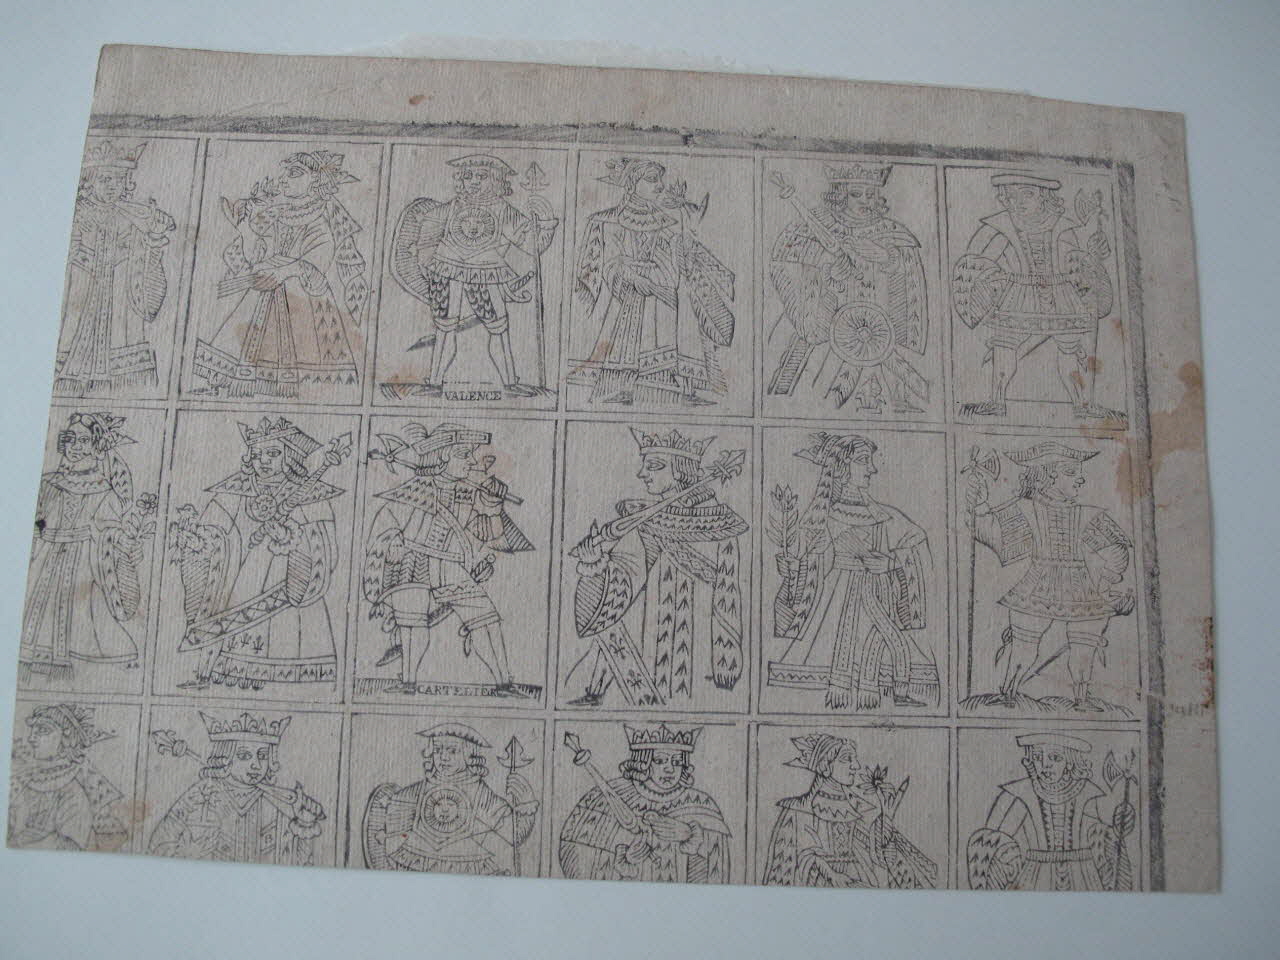 VALENCE
CARTELIER